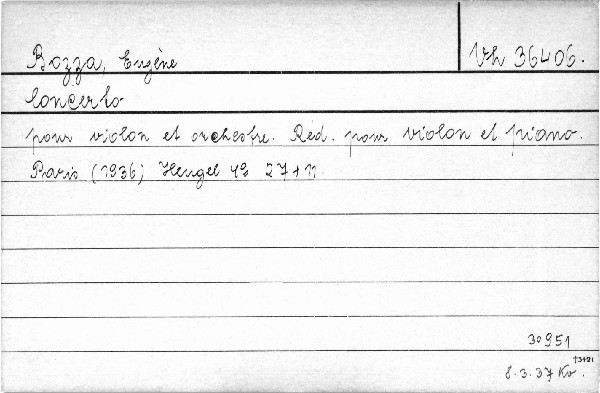 Bozza, Eugène
Vh 36406.
Concerto
pour violon et orchestre. Réd. pour violon et piano.
Paris (1936) Heugel 4° 27+11
30951
8.3.37 Kv.